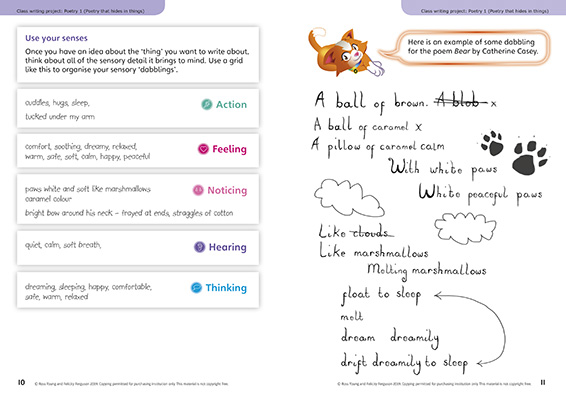 Class writing project: Poetry 1 (Poetry that hides in things)
Use your senses
Once you have an idea about the 'thing' you want to write about,
think about all of the sensory detail it brings to mind. Use a grid
like this to organise your sensory 'dabblings'.
cuddles, hugs, sleep,
tucked under my arm
Action
comfort, soothing, dreamy, relaxed,
warm, safe, soft, calm, happy, peaceful
Feeling
paws white and soft like marshmallows
caramel colour
bright bow around his neck – frayed at ends, straggles of cotton
Noticing
quiet, calm, soft breath,
Hearing
dreaming, sleeping, happy, comfortable,
safe, warm, relaxed
Thinking
10
© Ross Young and Felicity Ferguson 2019. Copying permitted for purchasing institution only. This material is not copyright free.
Class writing project: Poetry 1 (Poetry that hides in things)
Here is an example of some dabbling
for the poem Bear by Catherine Casey.
A ball of brown. A blob x
A ball of caramel x
A pillow of caramel calm
With white paws
White peaceful paws
Like clouds
Like marshmallows
Melting marshmallows
float to sleep
melt
dream dreamily
drift dreamily to sleep
© Ross Young and Felicity Ferguson 2019. Copying permitted for purchasing institution only. This material is not copyright free.
11